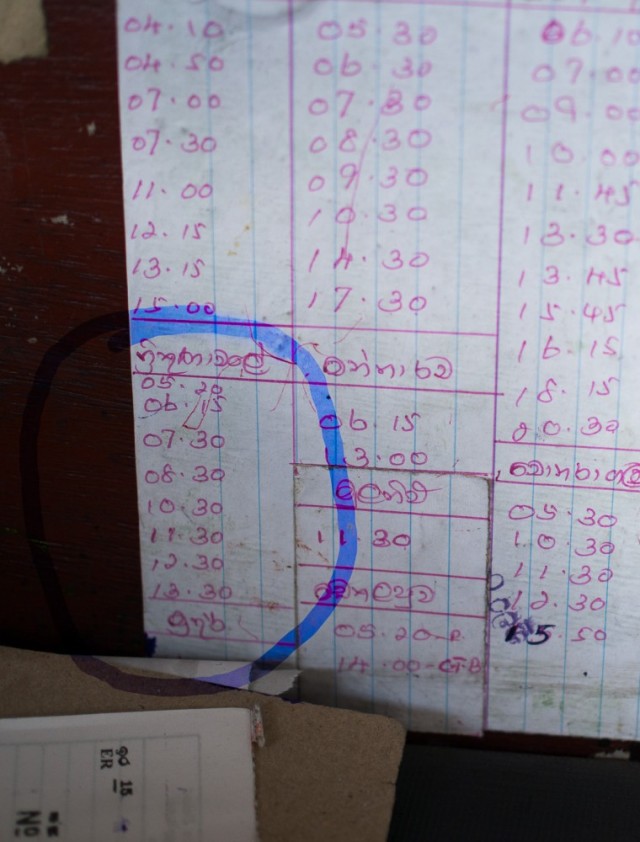 04.10
04.50
07.00
07.30
11.00
12.15
13.15
15.00
ත්‍රිකුණාමලේ
05.20
06.15
07.30
08.30
10.30
11.30
12.30
13.30
05.30
06.30
07.30
08.30
09.30
10.30
14.30
17.30
මන්නාරම
06.15
13.00
11.30
05.20-P
14.00-CTB
06.10
07.00
09.00
10.00
11.45
13.30
13.45
15.45
16.15
18.15
20.30
05.30
10.30
11.30
12.30
15.50
ER
15
NO